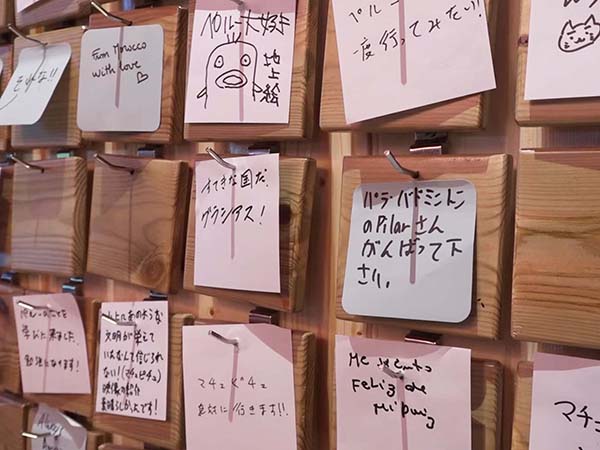 それな!!
From Morocco
with love ♡
ペルー大好き
地上絵
ペルー
一度行ってみたい!!
すてきな国だ!
グラシアス!
パラ・バドミントン
のPilarさん
がんばって下
さい。
学びに来ました。
勉強になります!
山の上にあのような
文明が栄えて
いたなんて信じられ
ない!(マチュピチュ)
映像の紹介
素晴らしかったです!
マチュピチュ
絶対に行きます!!
Me siento
Feliz de
マチュ